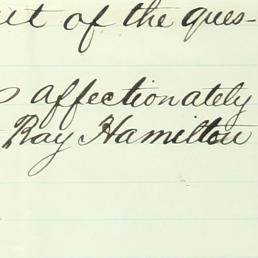 of the ques-
affectionately
Ray Hamilton